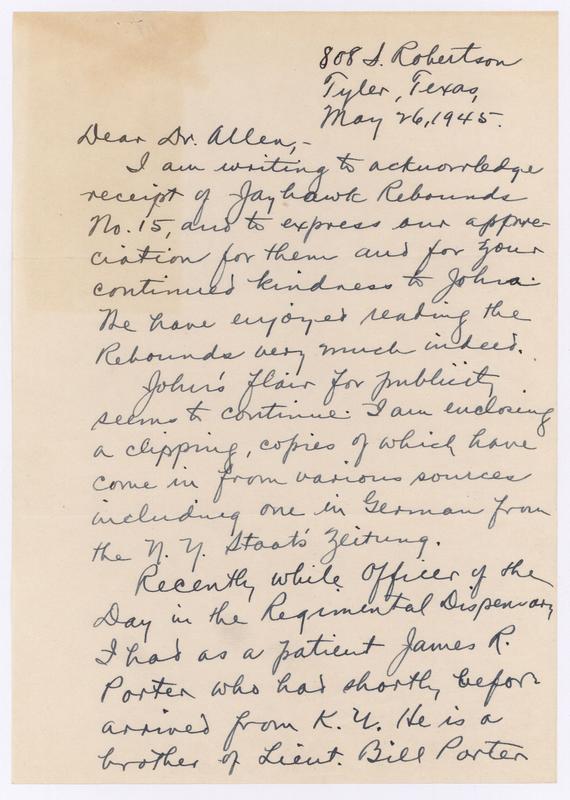 808 S. Robertson
Tyler, Texas,
May 26, 1945.
Dear Dr. Allen,-
I am writing to acknowledge
receipt of Jayhawk Rebounds
No. 15, and to express our appre-
ciation for them and for your
continued kindness to John.
We have enjoyed reading the
Rebounds very much indeed.
John's flair for publicity
seems to continue. I am enclosing
a clipping, copies of which have
come in from various sources
including one in German from
the N. Y. Staats Zeitung.
Recently while Officer of the
Day in the Regimental Dispensary
I had as a patient James R.
Porter who had shortly before
arrived from K. U. He is a
brother of Lieut. Bill Porter